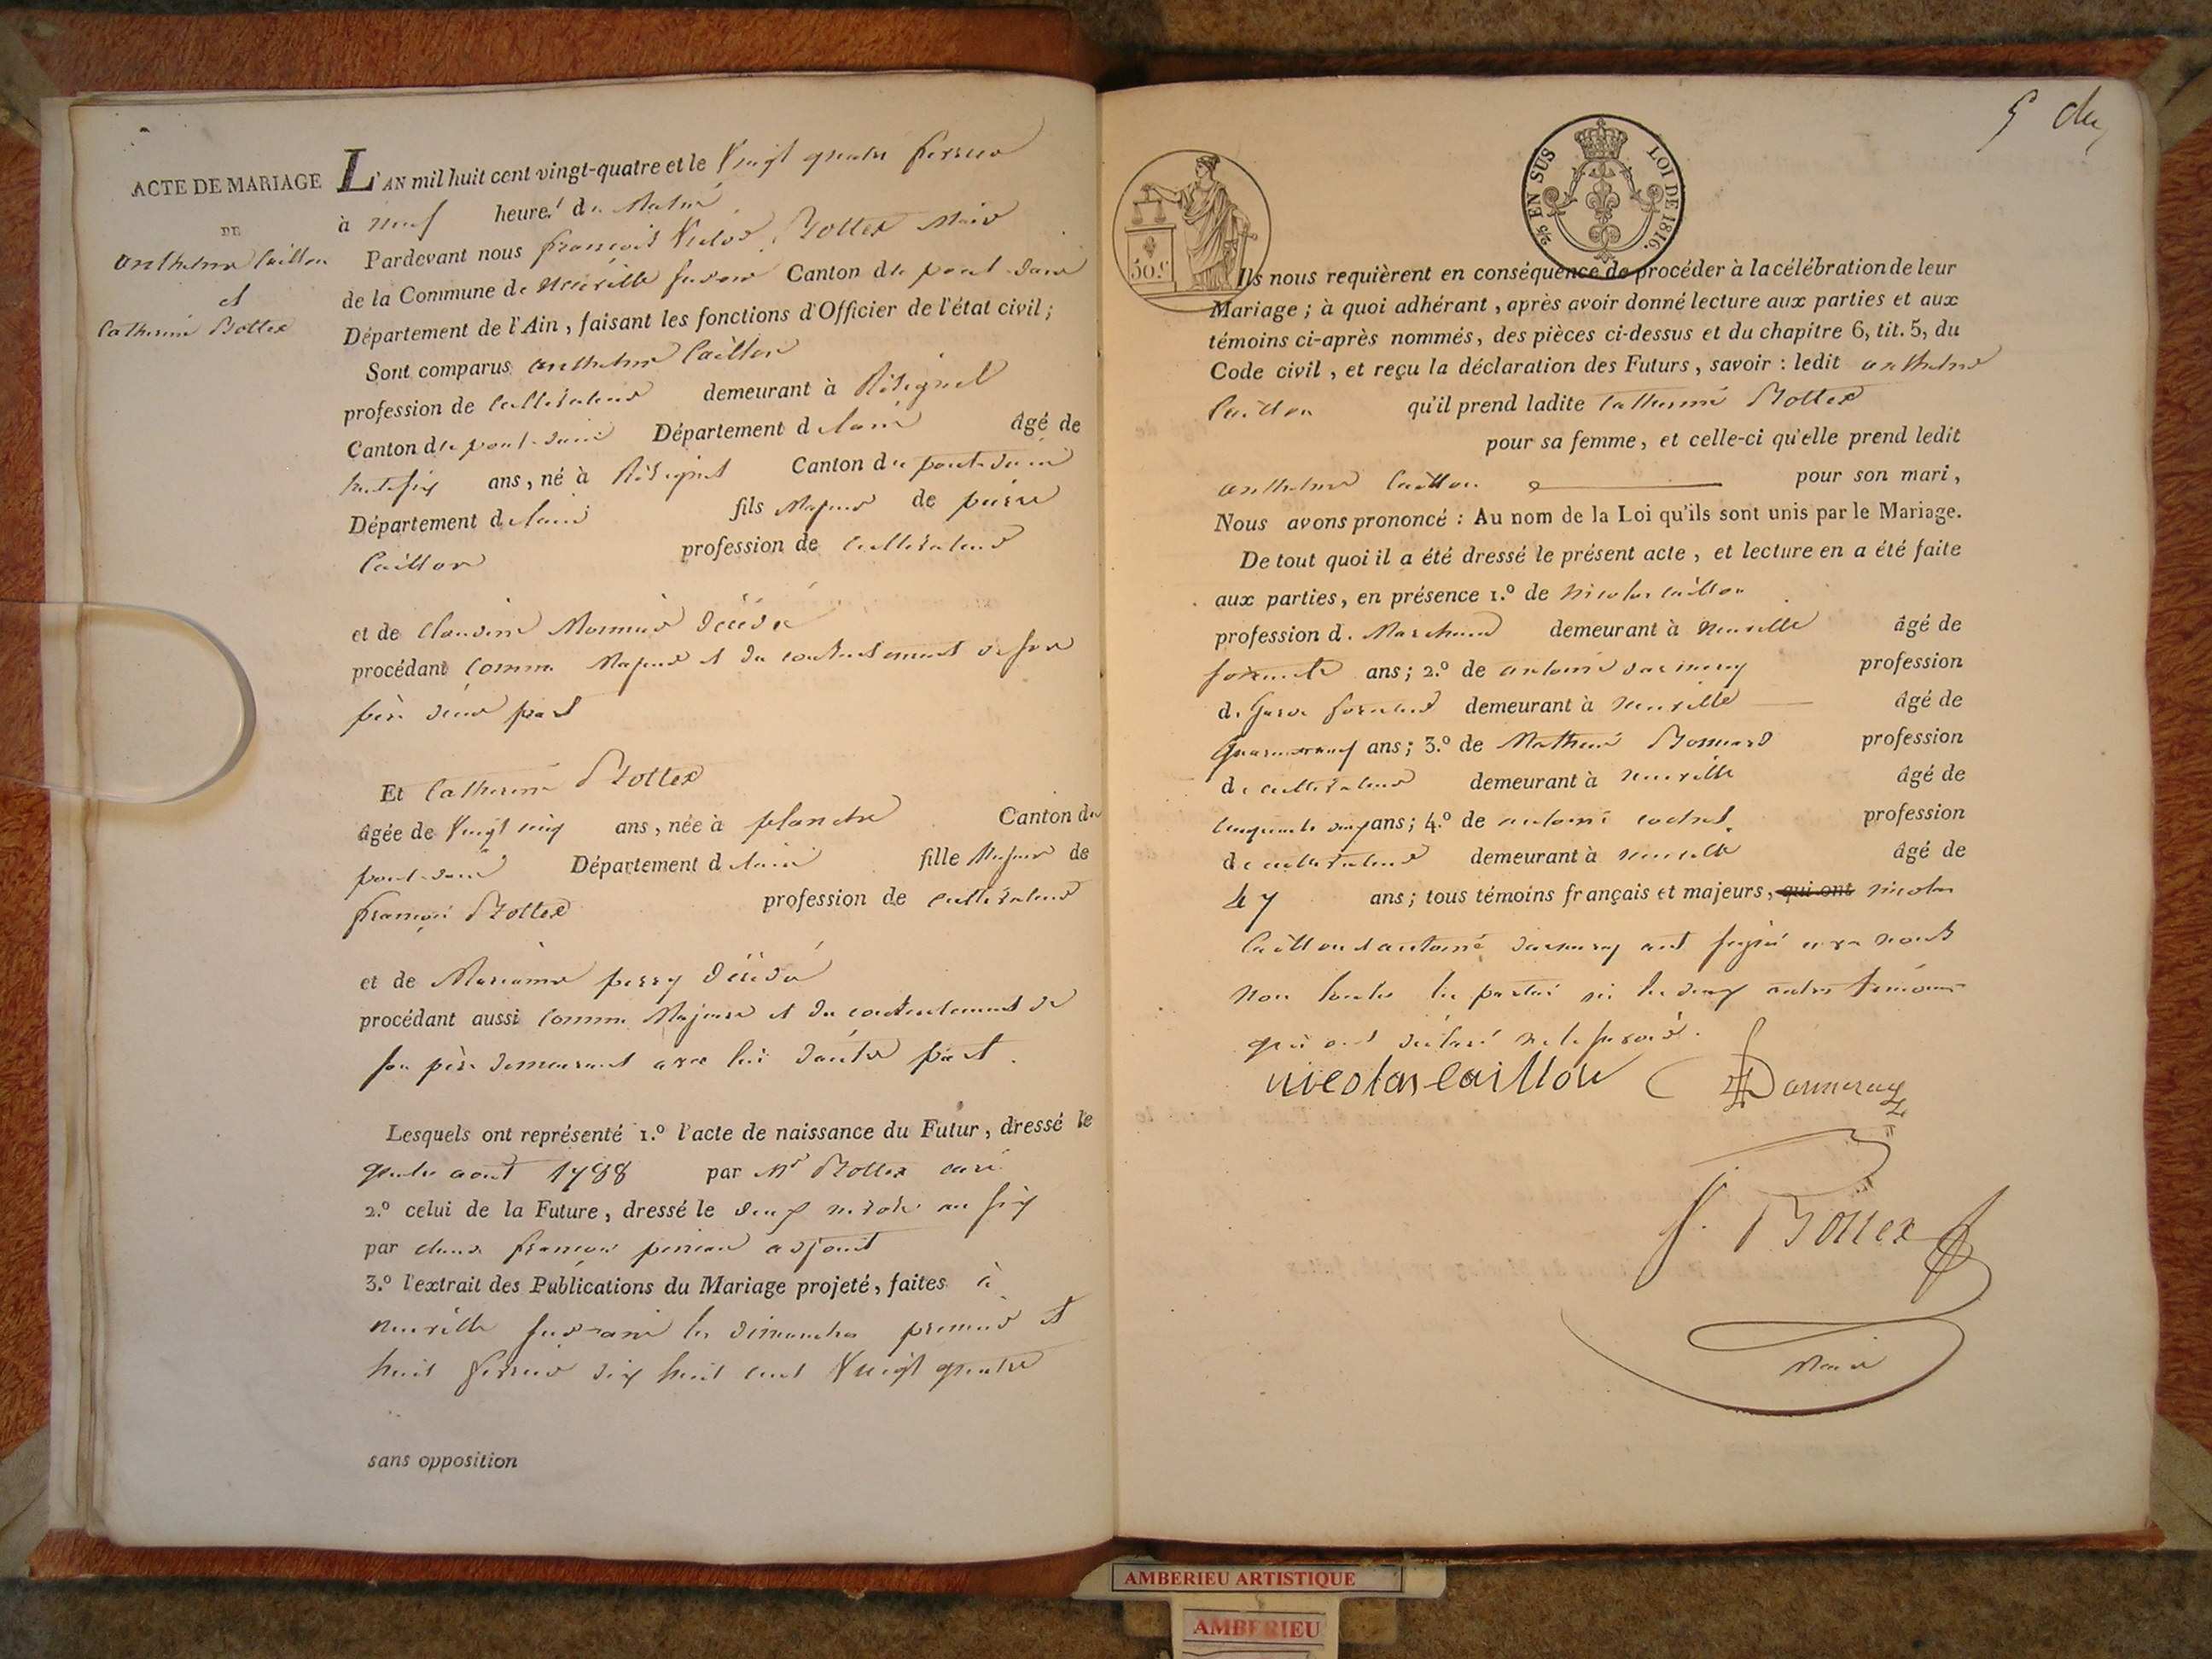 ACTE DE MARIAGE
DE
anthelme Caillon
et
Catherine Bottex
L'AN mil huit cent vingt-quatre et le Vingt quatre fevrier
à neuf heures du Matin
Pardevant nous françois Victor Bottex Maire
de la Commune de Neuville sur ain Canton de pont-dain
Département de l'Ain, faisant les fonctions d'Officier de l'état civil;
Sont comparus anthelme Caillon
profession de Cultivateur demeurant à Résignel
Canton de pont-dain Département de lain âgé de
trente six ans, né à Résignel Canton de pont-dain
Département de lain fils Majeur de pierre
Caillon profession de Cultivateur
et de Claudine décédée
procédant comme Majeur et du consentement de son
père d'une part
Et Catherine Bottex
âgée de Vingt six ans, née à planche Canton de
pont-dain Département de lain fille Majeure de
françois Bottex profession de cultivateur
et de Marianne perry décédée
procédant aussi comme Majeure et du consentement de
son père demeurant avec lui dautre part.
Lesquels ont représenté 1.º l'acte de naissance du Futur, dressé le
quatre aout 1788 par Mr Bottex curé
2.º celui de la Future, dressé le deux nivose an six
par françois adjoint
3.º l'extrait des Publications du Mariage projeté, faites à
neuville sur-ain les dimanches premier et
huit fevrier dix huit cent Vingt quatre
sans opposition
5 
2/5 EN SUS LOI DE 1816.
50.c
Ils nous requièrent en conséquence de procéder à la célébration de leur
Mariage; à quoi adhérant, après avoir donné lecture aux parties et aux
témoins ci-après nommés, des pièces ci-dessus et du chapitre 6, tit. 5, du
Code civil, et reçu la déclaration des Futurs, savoir: ledit anthelme
Caillon qu'il prend ladite Catherine Bottex
pour sa femme, et celle-ci qu'elle prend ledit
anthelme Caillon pour son mari,
Nous avons prononcé: Au nom de la Loi qu'ils sont unis par le Mariage.
De tout quoi il a été dressé le présent acte, et lecture en a été faite
aux parties, en présence 1.º de nicolas caillon
profession de Marchand demeurant à Neuville âgé de
soixante ans; 2.º de antoine darmeray profession
de garde forestier demeurant à Neuville âgé de
quarante neuf ans; 3.º de Mathieu Bonnard profession
de cultivateur demeurant à neuville âgé de
cinquante cinq ans; 4.º de antoine profession
de cultivateur demeurant à neuville âgé de
47 ans; tous témoins français et majeurs, qui ont nicolas
Caillon et antoine darmeray ont signé avec nous
non toutes les parties ni les deux autres témoins
qui ont déclaré ne le savoir.
nicolas caillon Darmeray
f. Bottex
Maire
AMBERIEU ARTISTIQUE
AMBERIEU